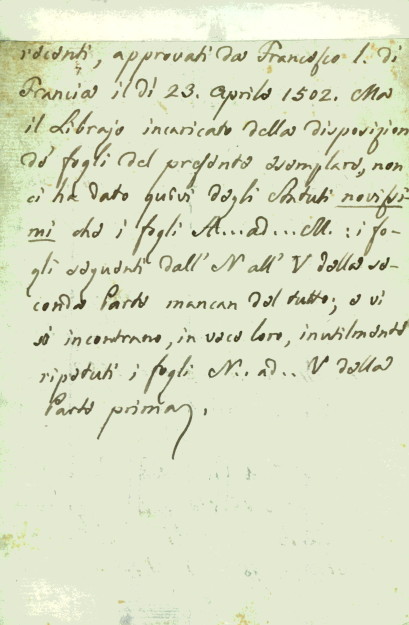 recenti, approvati da Francesco I. di
Francia il dì 23. Aprile 1502. Ma
il Librajo incaricato della disposizion
de' fogli del presente esemplare, non
ci ha dato quivi degli Statuti novissi-
mi che i fogli A... ad... M. : i fo-
gli seguenti dall' N all' V della se-
conda Parte mancan del tutto; e vi
si incontrano, in vece loro, inutilmente
ripetuti i fogli N.. ad.. V della
Parte prima.